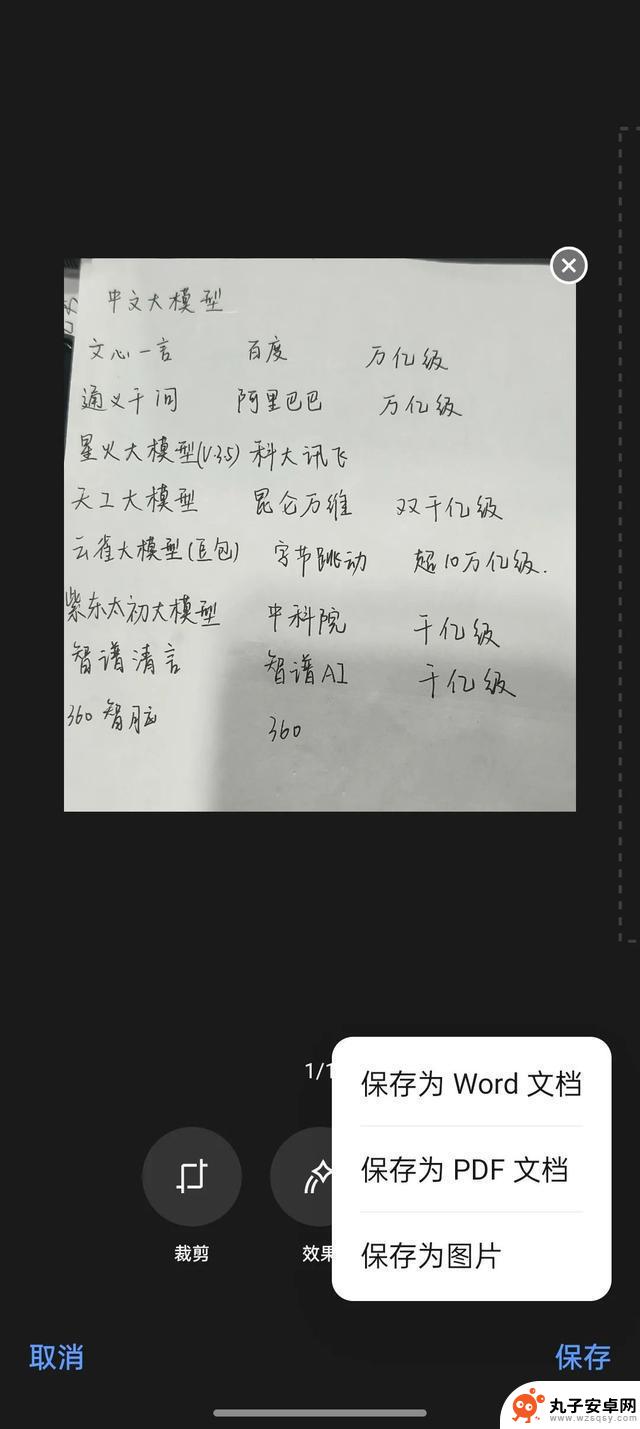 中文大模型
文心一言 百度 万亿级
通义千问 阿里巴巴 万亿级
星火大模型(V3.5) 科大讯飞
天工大模型 昆仑万维 双千亿级
云雀大模型(豆包) 字节跳动 超10万亿级.
紫东太初大模型 中科院 千亿级
智谱清言 智谱AI 千亿级
360智脑 360
1/1
保存为 Word 文档
保存为 PDF 文档
保存为图片
裁剪 效果
取消 保存
丸子安卓网
www.wzsqsy.com